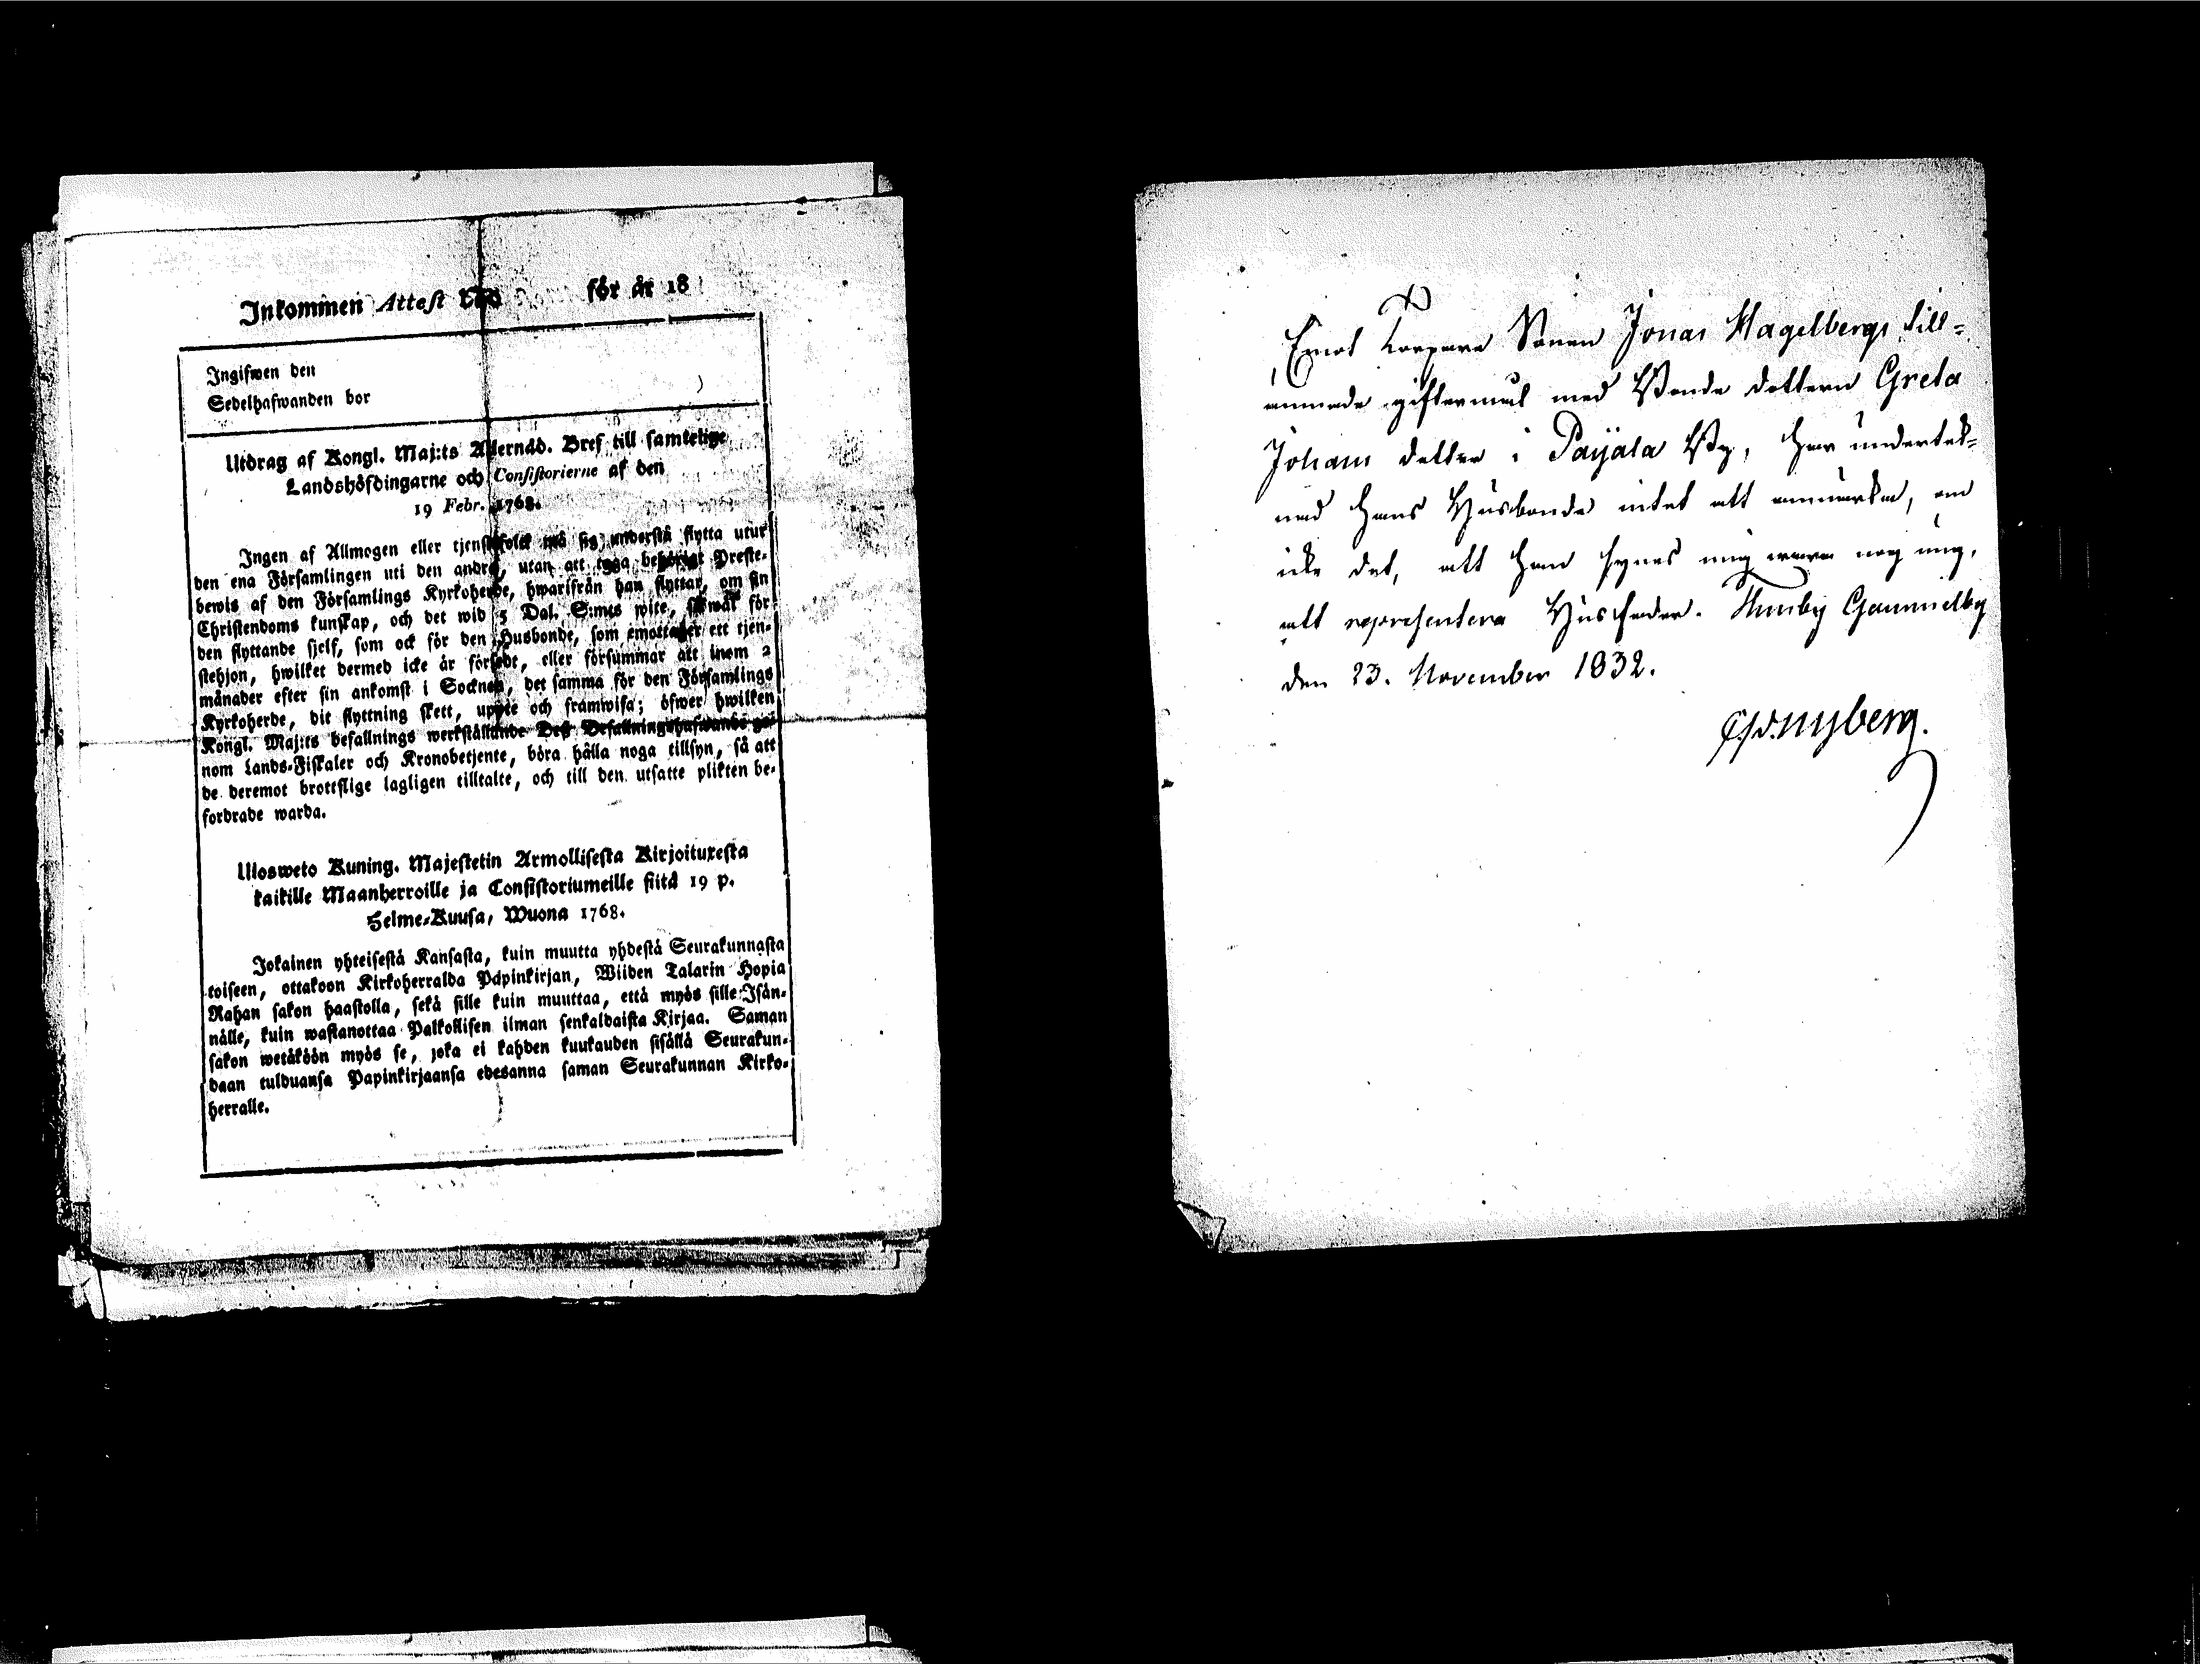 Inkommen Attest N:o för år 18
Ingifwen den
Sedelhafwanden bor
Utdrag af Kongl. Maj:ts Allernåd. Bref till samtelige
Landshöfdingarne och Consistorierne af den
19 Febr. 1768.
Ingen af Allmogen eller tjenstefolck må sig understå flytta utur
den ena Församlingen uti den andra, utan att äga behörigt Preste-
bewis af den Församlings Kyrkoherde, hwarifrån han flyttar, om sin
Christendoms kunskap, och det wid 5 Dal. S:mts wite, såwäl för
den flyttande sjelf, som ock för den Husbonde, som emottager ett tjen-
stehjon, hwilket dermed icke är försedt, eller försummar att inom 2
månader efter sin ankomst i Socknen, det samma för den Församlings
Kyrkoherde, dit flyttning skett, uppte och framwisa; öfwer hwilken
Kongl. Maj:ts befallnings werkställande Dess Befallningshafwande ge-
nom Lands-Fiskaler och Kronobetjente, böra hålla noga tillsyn, så att
de deremot brottslige lagligen tilltalte, och till den utsatte plikten be-
fordrade warda.
Ulosweto Kuning. Majestetin Armollisesta Kirjoituxesta
kaikille Maanherroille ja Consistoriumeille siitä 19 p.
Helme-Kuusa, Wuona 1768.
Jokainen yhteisestä Kansasta, kuin muutta yhdestä Seurakunnasta
toiseen, ottakoon Kirkoherralda Papinkirjan, Wiiden Talarin Hopia
Rahan sakon haastolla, sekä sille kuin muuttaa, että myös sille Isän-
nälle, kuin wastanottaa Palkollisen ilman senkaldaista Kirjaa. Saman
sakon wetäköön myös se, joka ei kahden kuukauden sisällä Seurakun-
daan tulduansa Papinkirjaansa edesanna saman Seurakunnan Kirko-
herralle.
Emot Torpare Sonen Jonas Hagelbergs till-
ernade giftermål med Bonde dottern Greta
Johans dotter i Paijala By, har underteck-
nad hans Husbonde intet att anmärka, om
icke det, att han synes mig wara nog ung,
att representera Husfader. Thusby Gammelby
den 23. November 1832.
Nyberg.